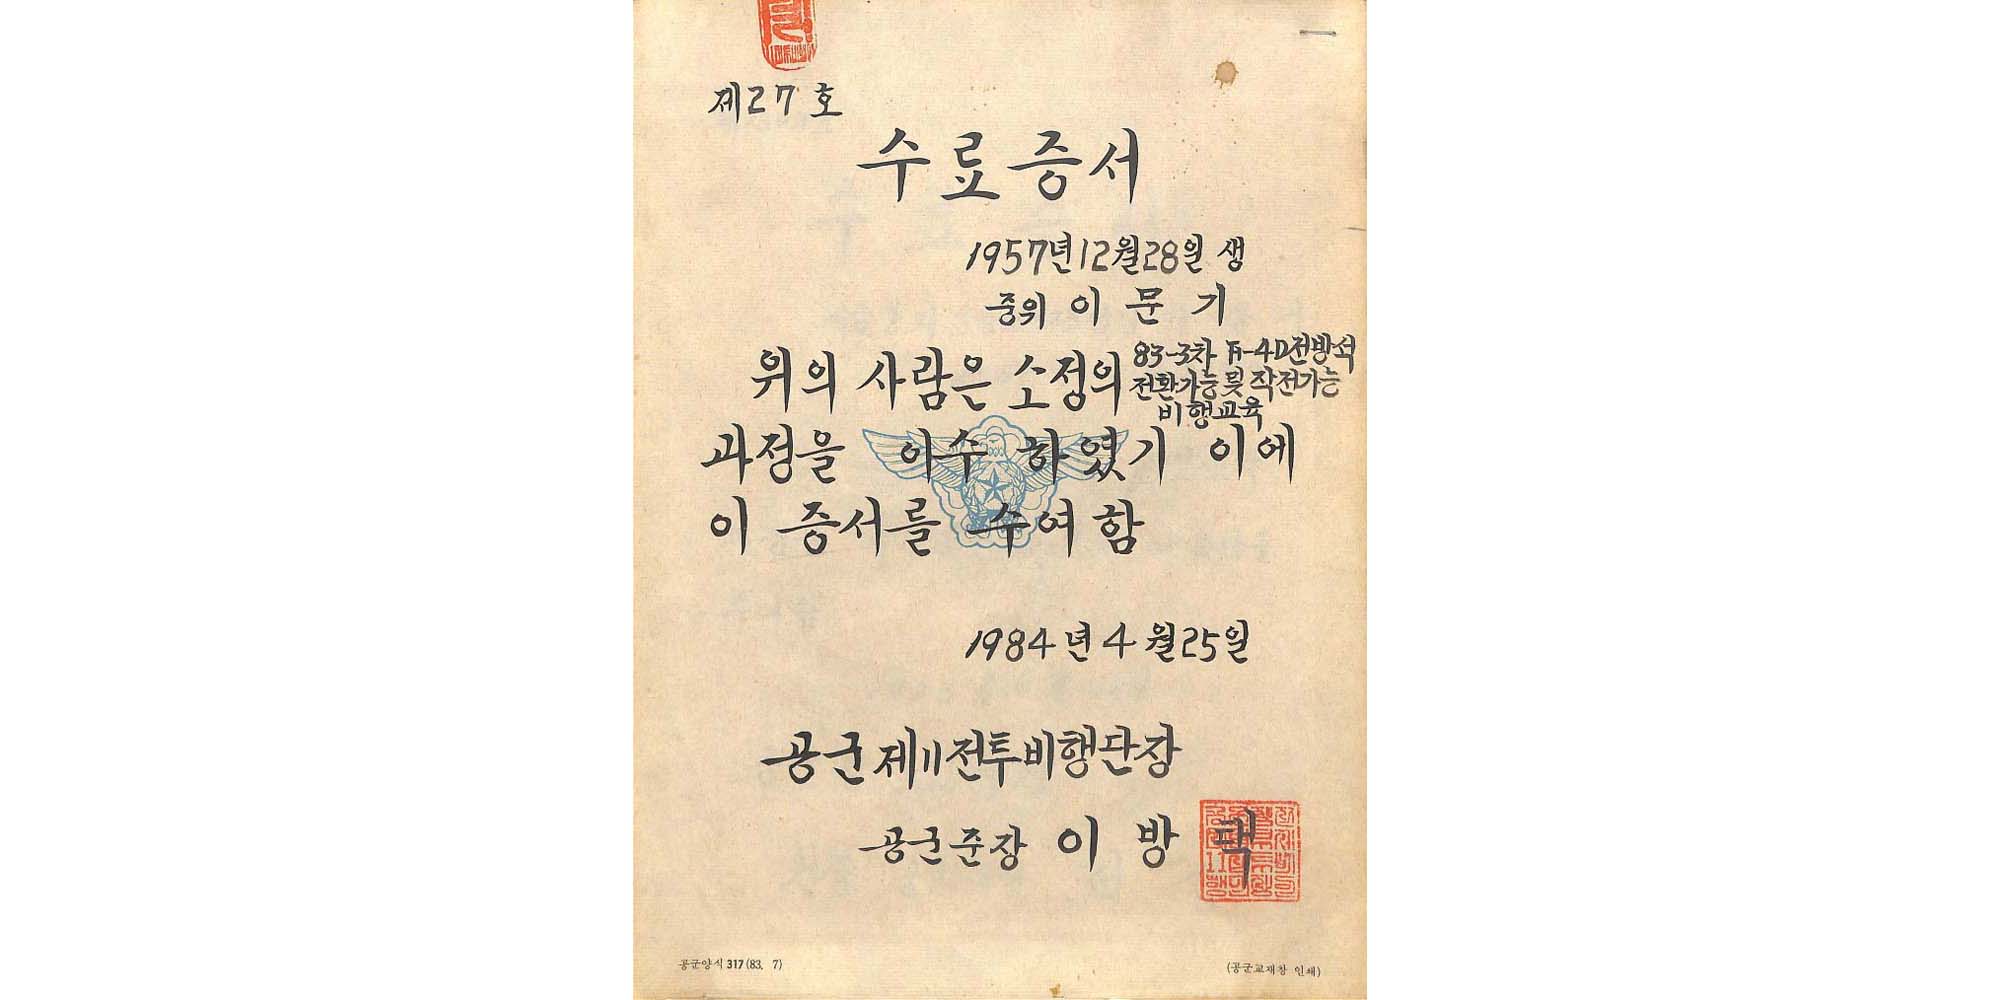 제27호
수료증서
1957년12월28일생
중위 이문기
위의 사람은 소정의 83-3차 F-4D전방석
전환가능및작전가능
비행교육
과정을 이수 하였기 이에
이 증서를 수여함
1984년4월25일
공군제11전투비행단장
공군준장 이방택
공군양식 317 (83. 7)
(공군교재창 인쇄)